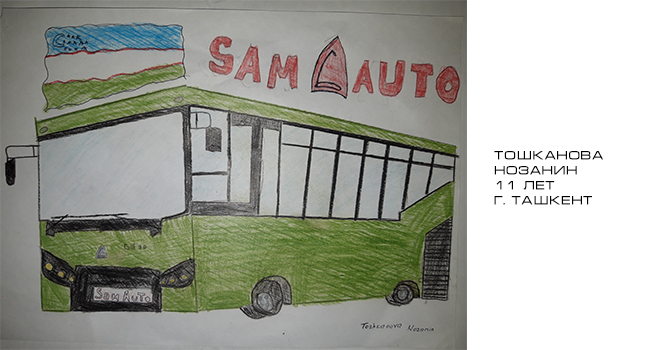 SAM AUTO
SAM AUTO
Toshcanova Nozanin
ТОШКАНОВА
НОЗАНИН
11 ЛЕТ
Г. ТАШКЕНТ